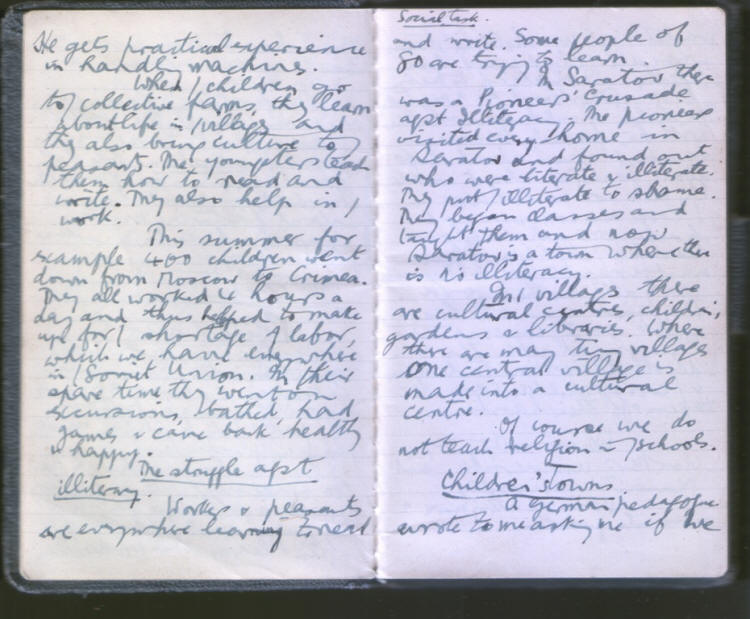 He gets practical experience
in handling machines.
When / children go
to / collective farms, they learn
about life in / village and
they also bring culture to /
peasants. The youngsters teach
them how to read and
write. They also help in /
work.
This summer for
example 400 children went
down from Moscow to Crimea.
They all worked 4 hours a
day and thus helped to make
up for / shortage of labor,
which we have everywhere
in / Soviet Union. In their
spare time they went on
excursions, bathed, had
games & came back healthy
& happy.
The struggle agst
illiteracy.
Workers & peasants
are everywhere learning to read
Social task.
and write. Some people of
80 are trying to learn.
In Saratov there
was a Pioneers' Crusade
agst Illiteracy. The pioneers
visited every home in
Saratov and found out
who were literate & illiterate.
They put / illiterate to shame.
They began classes and
taught them and now
Saratov is a town where there
is no illiteracy.
In / villages there
are cultural centres, children's
gardens & libraries. Where
there are many tiny villages
one central village is
made into a cultural
centre.
Of course we do
not teach religion in / schools.
Children's Towns.
A German pedagogue
wrote to me asking me if we